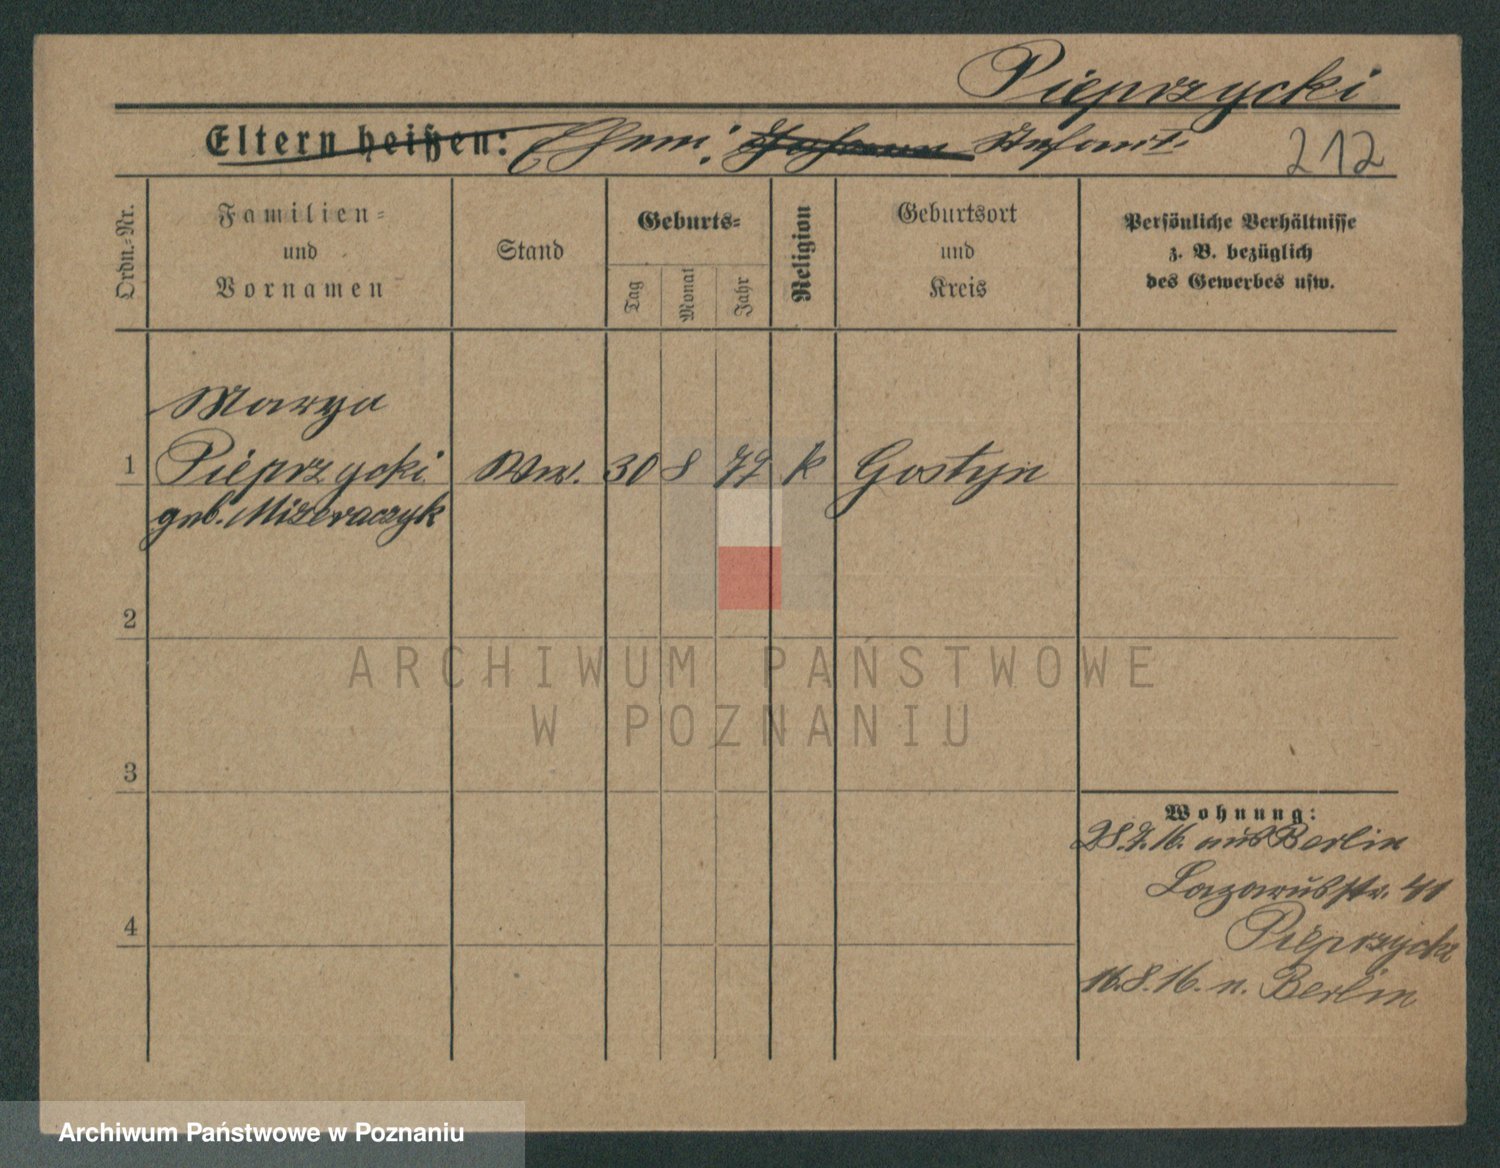 Pieprzycki
Eltern heißen: Ehem: Stefanit. 212
Ordn.-Nr.
Familien-
und
Vornamen
Stand
Geburts-
Tag
Monat
Jahr
Religion
Geburtsort
und
Kreis
Persönliche Verhältnisse
z. B. bezüglich
des Gewerbes usw.
Marya
1 Pieprzycki Ww. 30 8 72 k Gostyn
geb. Mizeraczyk
2
ARCHIWUM PAŃSTWOWE
W POZNANIU
3
Wohnung:
28.7.16. aus Berlin
Lazarusstr. 41
Pieprzycki
4
16.8.16. n. Berlin
Archiwum Państwowe w Poznaniu